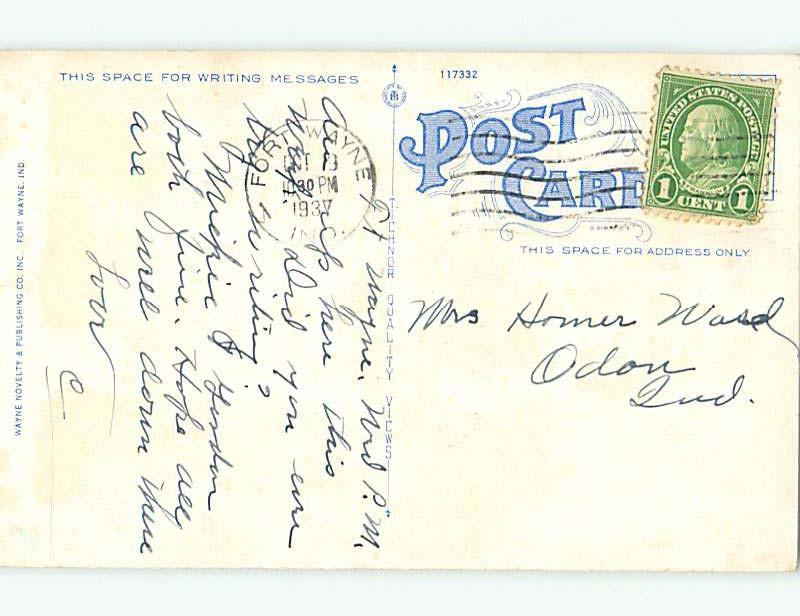 THIS SPACE FOR WRITING MESSAGES
117332
POST CARD
THIS SPACE FOR ADDRESS ONLY
UNITED STATES POSTAGE
FRANKLIN
1 CENT 1
FORT WAYNE
10 30 PM
1937
IND.
Ft Wayne, Wed P.M.
Are up here this
week. Did you ever
try skating?
& Gordon
both fine. Hope all
are well down there
Love
C
Mrs Homer Ward
Odon
Ind.
TICHNOR QUALITY VIEWS
WAYNE NOVELTY & PUBLISHING CO. INC. FORT WAYNE, IND.